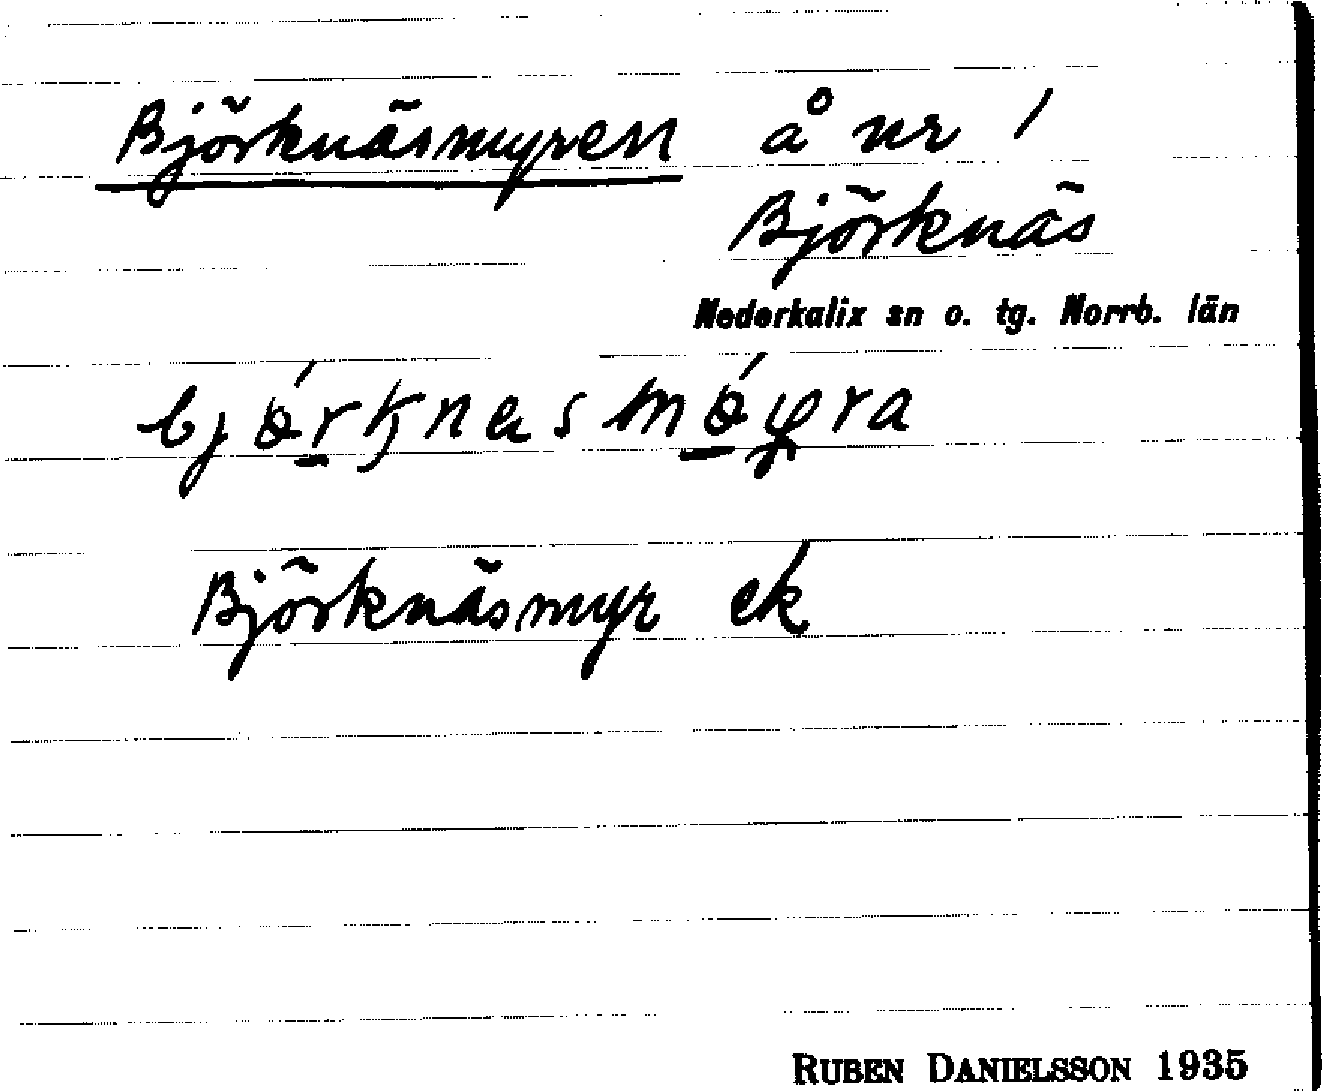 Björknäsmyren å nr 1
Björknäs
Nederkalix sn o. tg. Norrb. län
Björknäsmyr ek
RUBEN DANIELSSON 1935